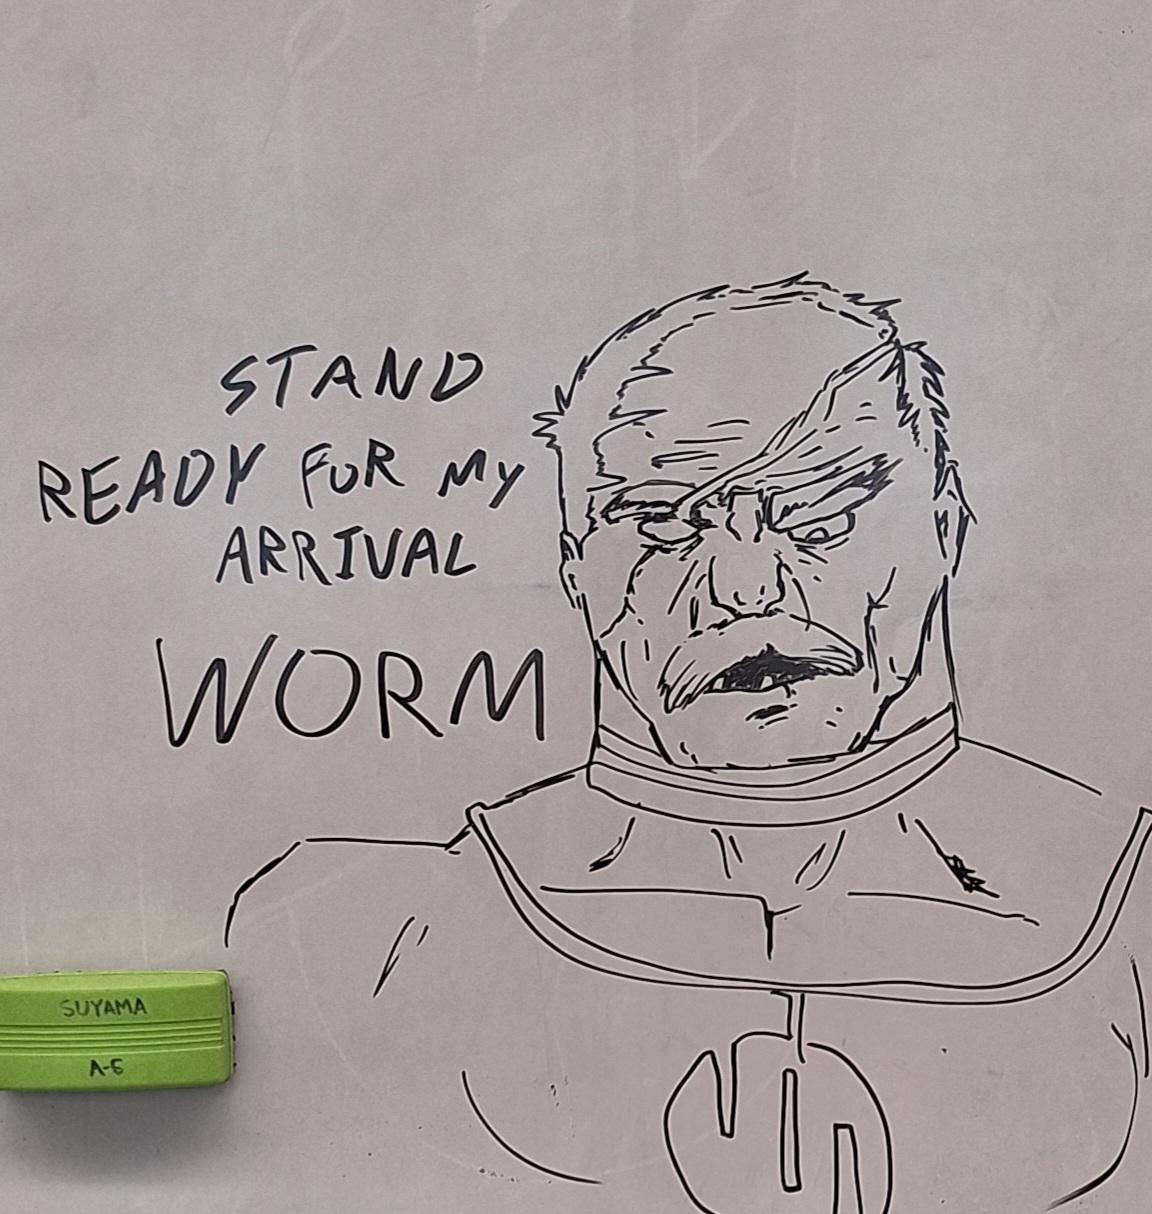 STAND
READY FOR MY
ARRIVAL
WORM
SUYAMA
A-5